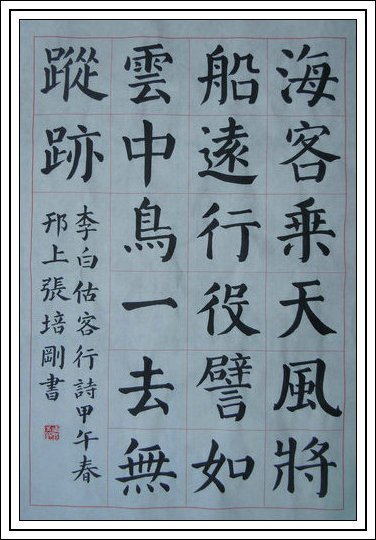 海客乗天風將
船遠行役譬如
雲中鳥一去無
蹤跡
李白估客行詩甲午春
邗上張培剛書